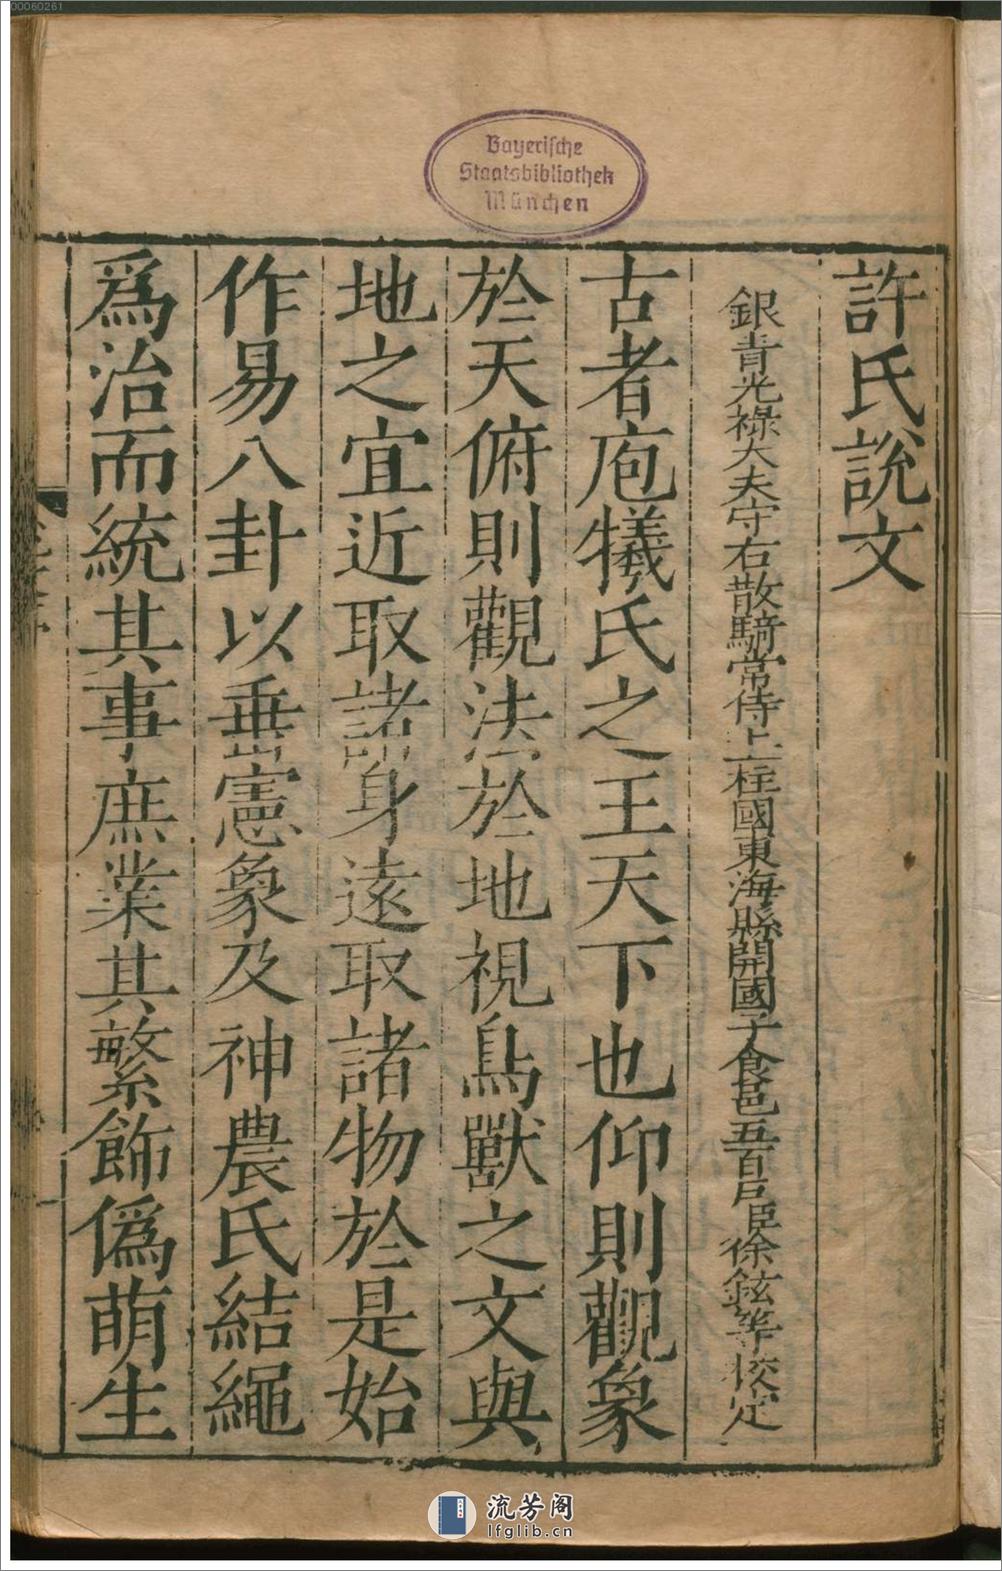 00060261
Bayerische
Staatsbibliothek
München
許氏說文
銀青光祿大夫守右散騎常侍上柱國東海縣開國子食邑五百戶臣徐鉉等校定
古者庖犧氏之王天下也仰則觀象
於天俯則觀法於地視鳥獸之文與
地之宜近取諸身遠取諸物於是始
作易八卦以垂憲象及神農氏結繩
爲治而統其事庶業其繁飾僞萌生
流芳阁
lfglib.cn